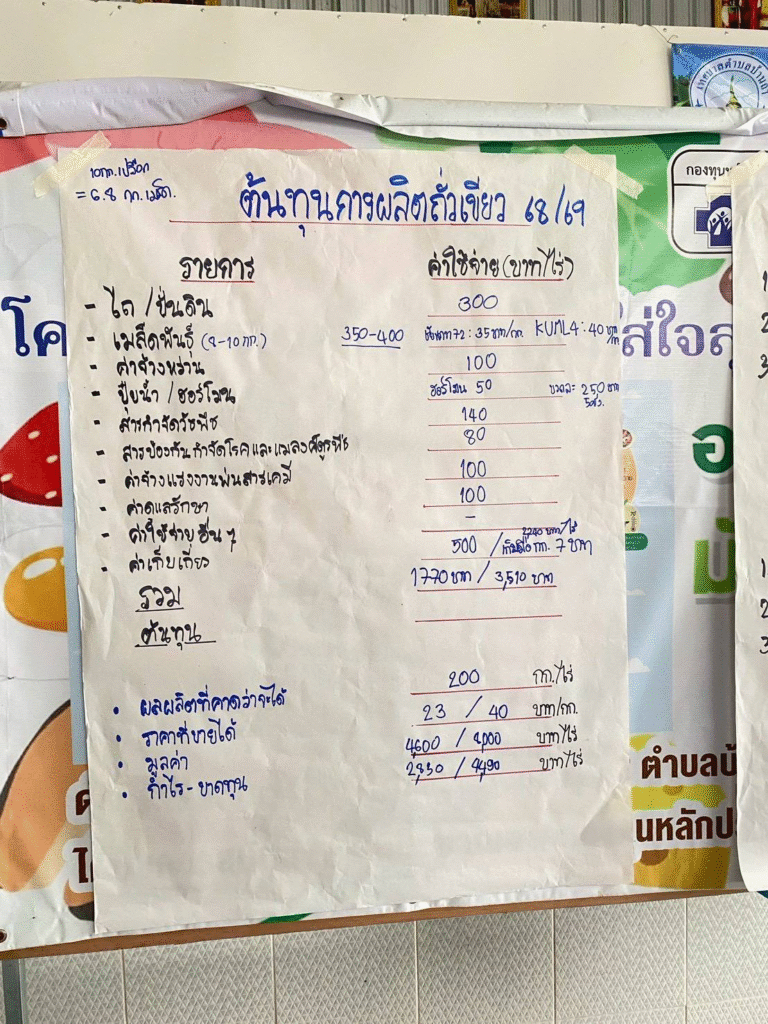 เทศบาลตำบลบ้านถ
กองทุน
10กก.เปลือก
= 6.8 กก.เมล็ด
ต้นทุนการผลิตถั่วเขียว 68/69
รายการ ค่าใช้จ่าย (บาท/ไร่)
- ไถ / ปั่นดิน 300
- เมล็ดพันธุ์ (8-10 กก.) 350-400 ชัยนาท72 : 35 บาท/กก. KUML4 : 40 บาท/กก.
- ค่าจ้างหว่าน 100
- ปุ๋ยน้ำ / ฮอร์โมน ฮอร์โมน 50 ขวดละ 250 บาท
- สารกำจัดวัชพืช 140
- สารป้องกันกำจัดโรคและแมลงศัตรูพืช 80
- ค่าจ้างแรงงานพ่นสารเคมี 100
- ค่าดูแลรักษา 100
- ค่าใช้จ่ายอื่น ๆ -
- ค่าเก็บเกี่ยว 500 / 2,240 บาท/ไร่ เก็บมือ กก. 7 บาท
รวม 1770 บาท / 3,510 บาท
ต้นทุน
• ผลผลิตที่คาดว่าจะได้ 200 กก./ไร่
• ราคาที่ขายได้ 23 / 40 บาท/กก.
• มูลค่า 4,600 / 8,000 บาท/ไร่
• กำไร - ขาดทุน 2,830 / 4,490 บาท/ไร่
โค
ส่ใจสุ
อ
ตำบลบ้
นหลักป
1
2
3
1
2
3